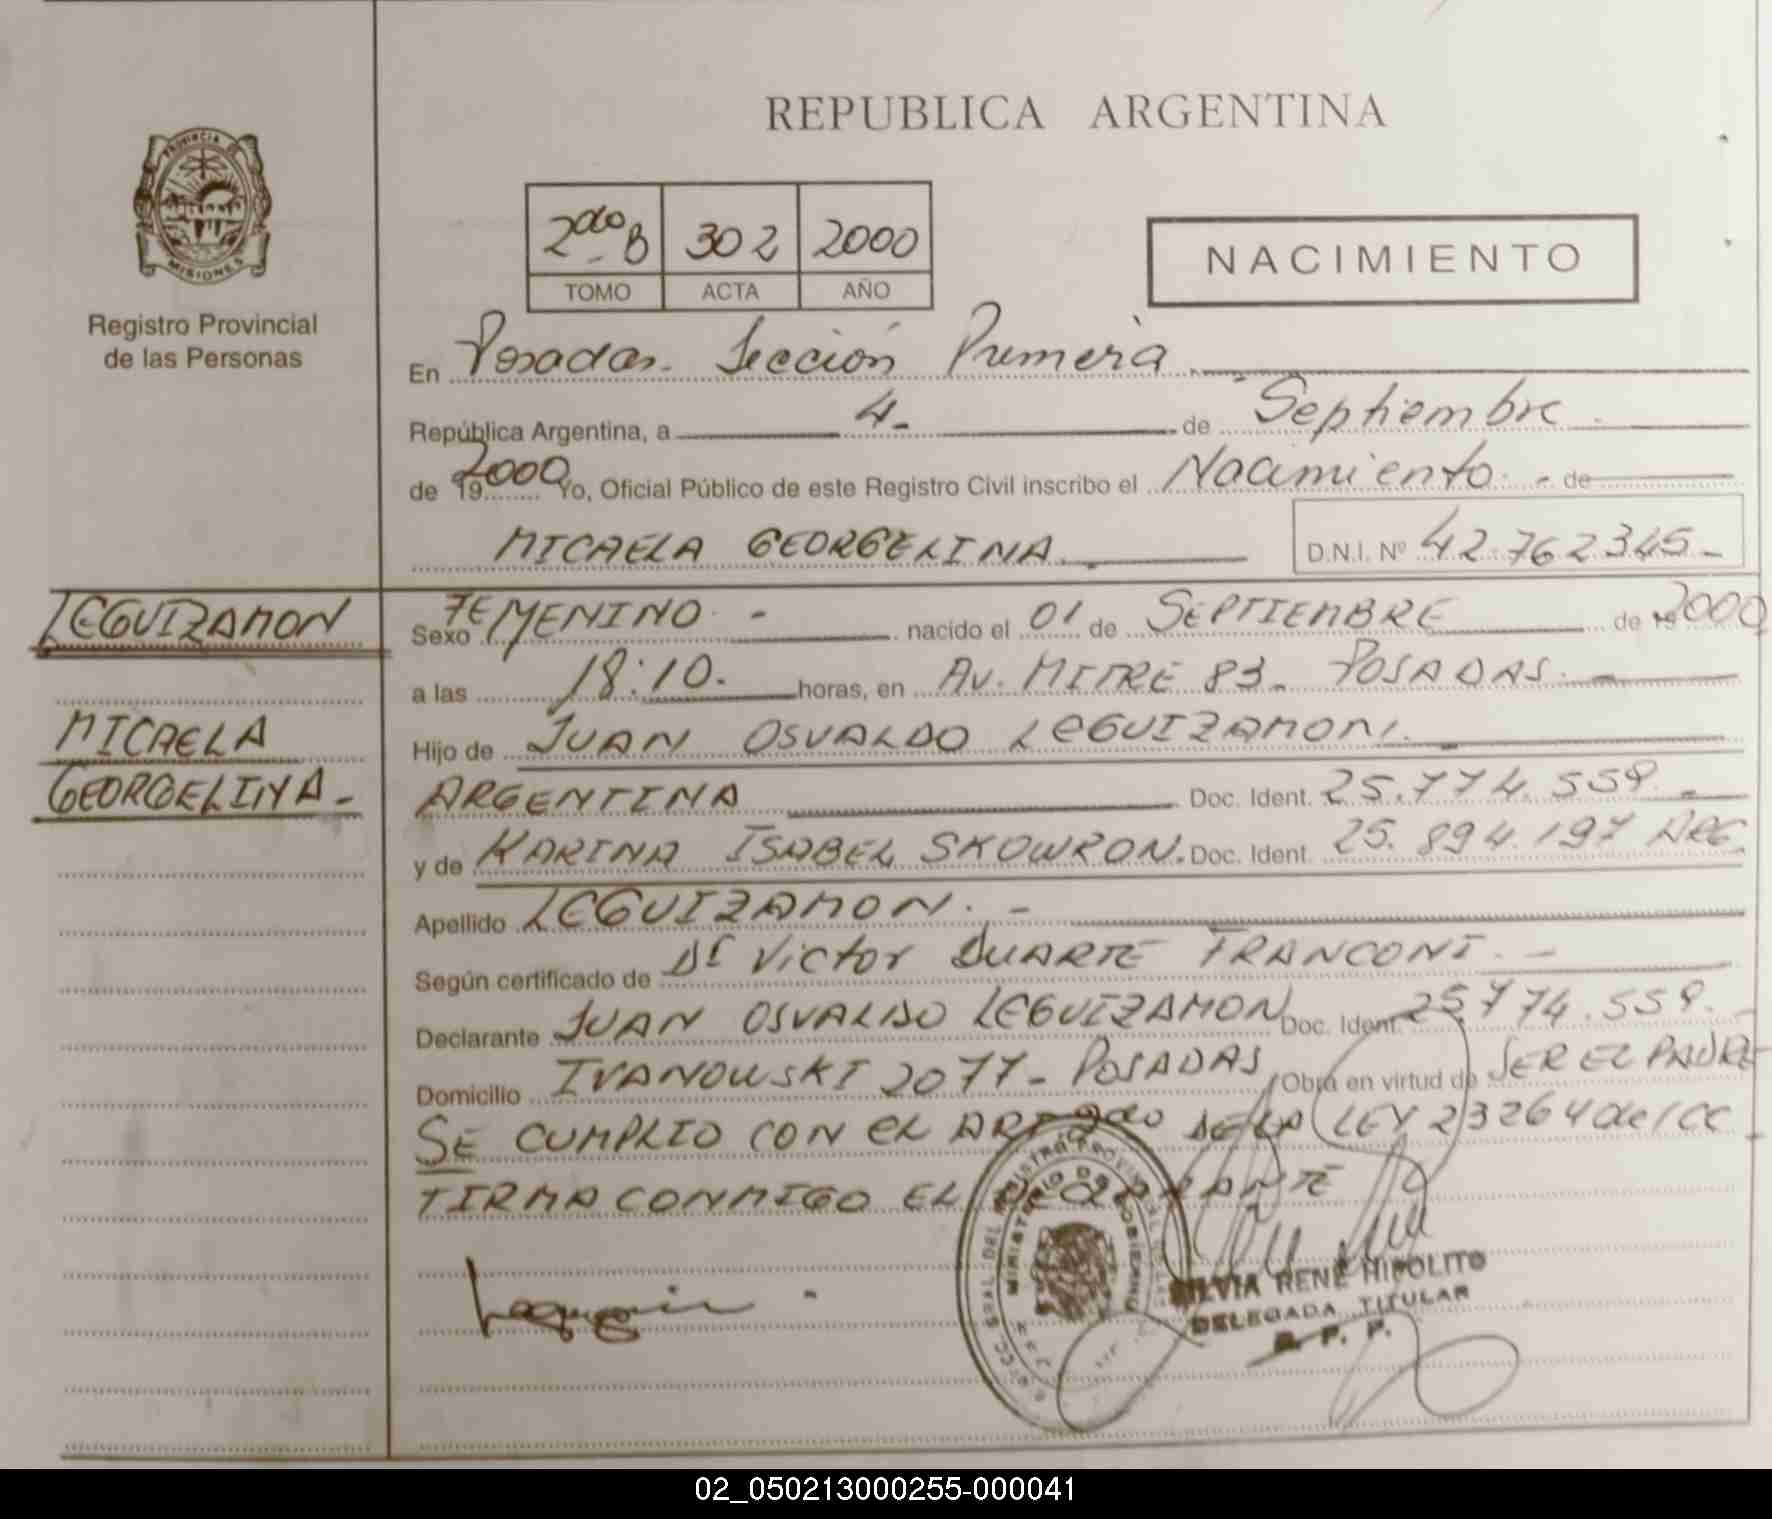 REPUBLICA ARGENTINA
PROVINCIA DE
MISIONES
Registro Provincial
de las Personas
2do B 302 2000
TOMO ACTA AÑO
NACIMIENTO
En Posadas. Sección Primera
República Argentina, a 4 de Septiembre
de 19 2000 Yo, Oficial Público de este Registro Civil inscribo el Nacimiento - de
MICAELA GEORGELINA. D.N.I. Nº 42.762345-
LEGUIZAMON
Sexo FEMENINO - nacido el 01 de SEPTIEMBRE de 19 2000
a las 18:10. horas, en AV. MITRE 83 - POSADAS.
MICAELA
Hijo de JUAN OSVALDO LEGUIZAMON.
GEORGELINA -
ARGENTINA Doc. Ident. 25.774.559. -
y de KARINA ISABEL SKOWRON. Doc. Ident. 25.894.197 ARG.
Apellido LEGUIZAMON. -
Según certificado de Dr Victor DUARTE FRANCONI. -
Declarante JUAN OSVALDO LEGUIZAMON Doc. Ident. 25.774.559. -
Domicilio IVANOWSKI 2077 - POSADAS Obra en virtud de SER EL PADRE
SE CUMPLIO CON EL ART 2do DE LA LEY 23264 del CC
FIRMA CONMIGO EL DECLARANTE
MINISTERIO DE GOBIERNO
SILVIA RENE HIPOLITO
DELEGADA TITULAR
R. P. P.
02_050213000255-000041